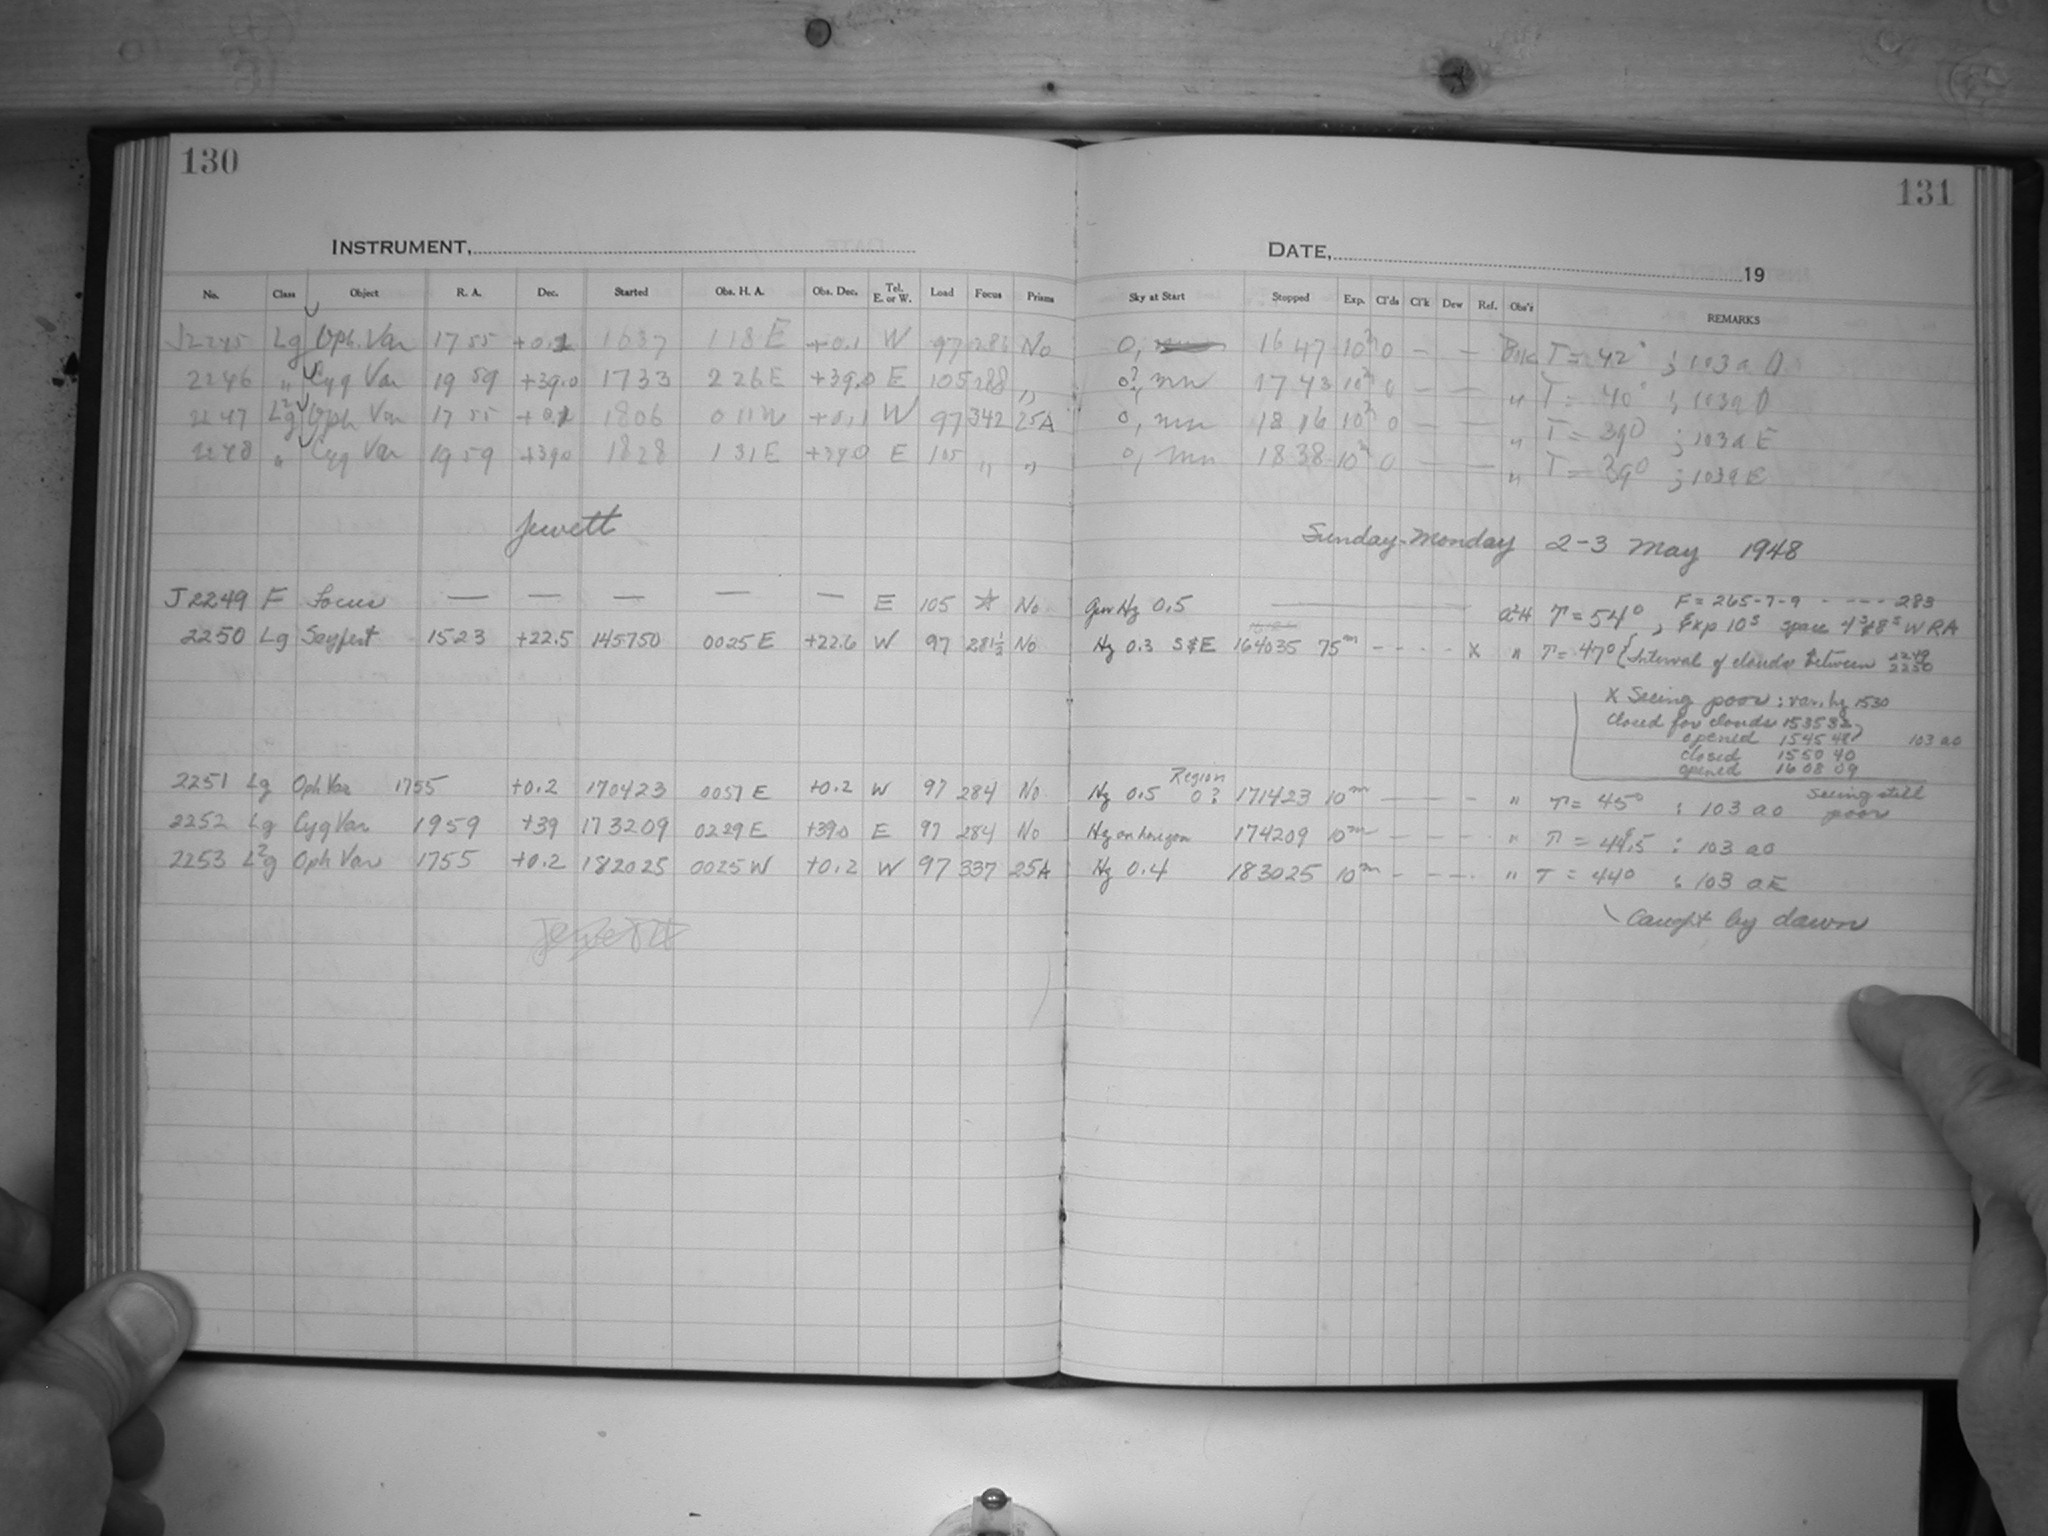 130
131
INSTRUMENT,
DATE, 19
No. Class Object R. A. Dec. Started Obs. H. A. Obs. Dec. Tel. E. or W. Load Focus Prisms Sky at Start Stopped Exp. Cl'ds Cl'k Dew Ref. Obs'r REMARKS
J2245 Lg Oph. Var 1755 +0.1 1637 118E +0.1 W 97 286 No 0, 1647 10m 0 — — T = 42° ; 103a O
2246 " Cyg Var 1959 +39.0 1733 226E +39.0 E 105 288 " 0?, mn 1743 10m 0 — — " T = 40° ; 103a O
2247 L2g Oph Var 1755 +0.1 1806 011W +0.1 W 97 342 25A 0, mn 1816 10m 0 — — " T = 39° ; 103a E
2248 " Cyg Var 1959 +39.0 1828 131E +39.0 E 105 " " 0, mn 1838 10m 0 — — " T = 39° ; 103a E
Jewett Sunday-Monday 2-3 May 1948
J2249 F Focus — — — — — E 105 ☆ No Gen Hz 0.5 T = 54°, F = 265-7-9 - - - - 283
Exp 10s space 4s & 8s W RA
2250 Lg Seyfert 1523 +22.5 145750 0025E +22.6 W 97 281½ No Hz 0.3 S&E 164035 75m - - - - X " T = 47° { Interval of clouds between 2249 2250
X Seeing poor : var. hz 1530
Closed for clouds 153532
opened 154548 103 aO
closed 155040
opened 160809
2251 Lg Oph Var 1755 +0.2 170423 0057E +0.2 W 97 284 No Hz 0.5 Region 0? 171423 10m — — - " T = 45° : 103 aO Seeing still poor
2252 Lg Cyg Var 1959 +39 173209 0229E +39.0 E 97 284 No Hz on horizon 174209 10m - - - - " T = 44°.5 : 103 aO
2253 L2g Oph Var 1755 +0.2 182025 0025W +0.2 W 97 337 25A Hz 0.4 183025 10m - - - - " T = 44° : 103 aE
Caught by dawn
Jewett